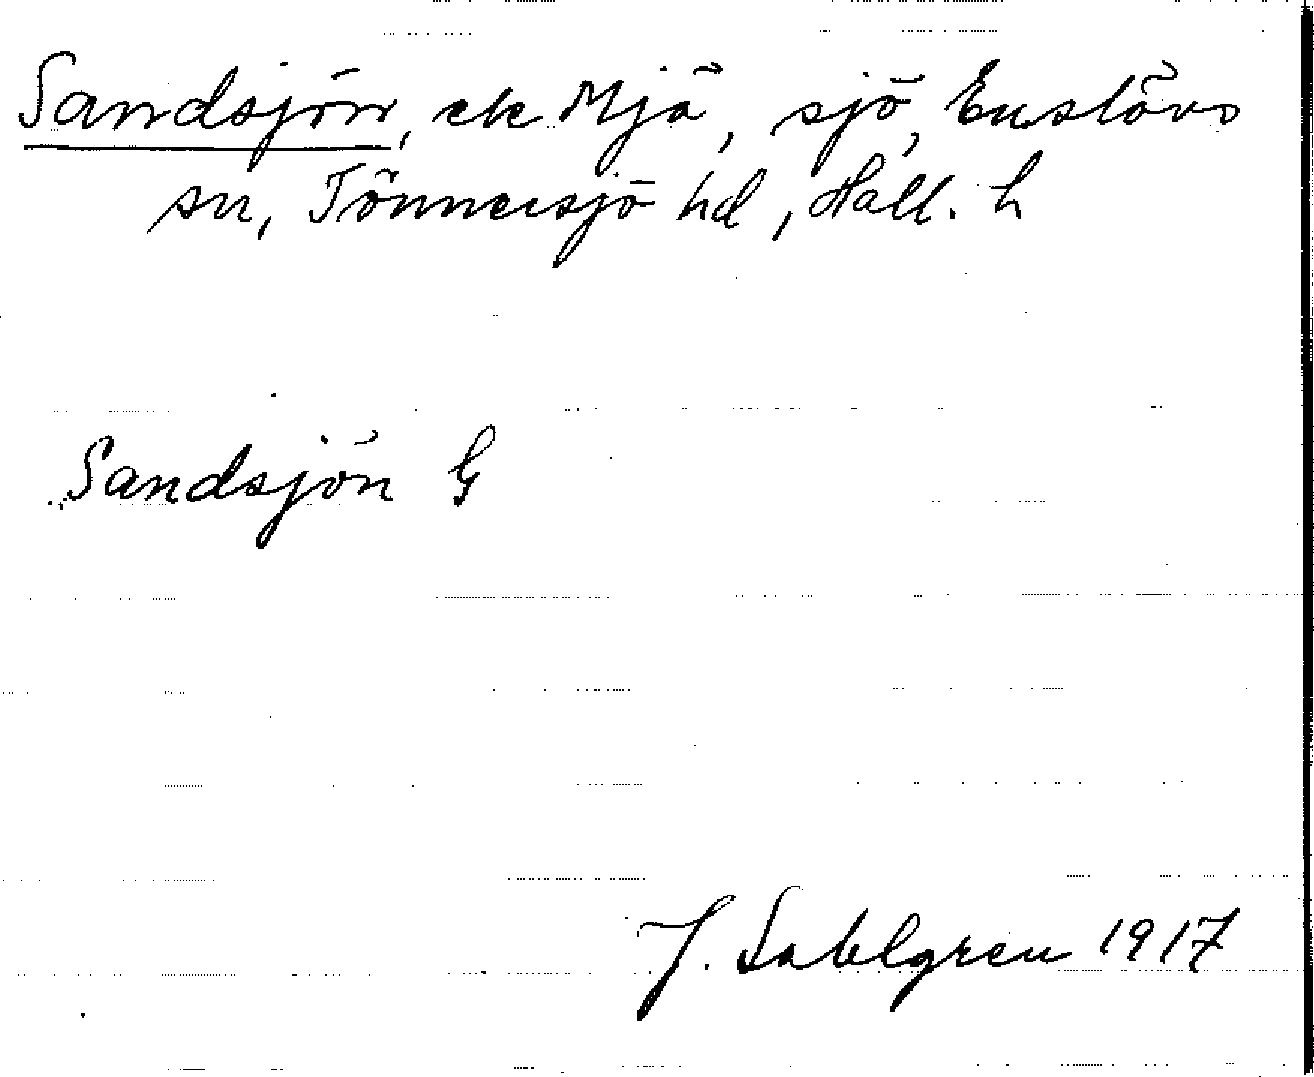 Sandsjön, ek Mjä, sjö, Enslövs
sn, Tönnersjö hd, Hall. L
Sandsjön G
J. Sahlgren 1917